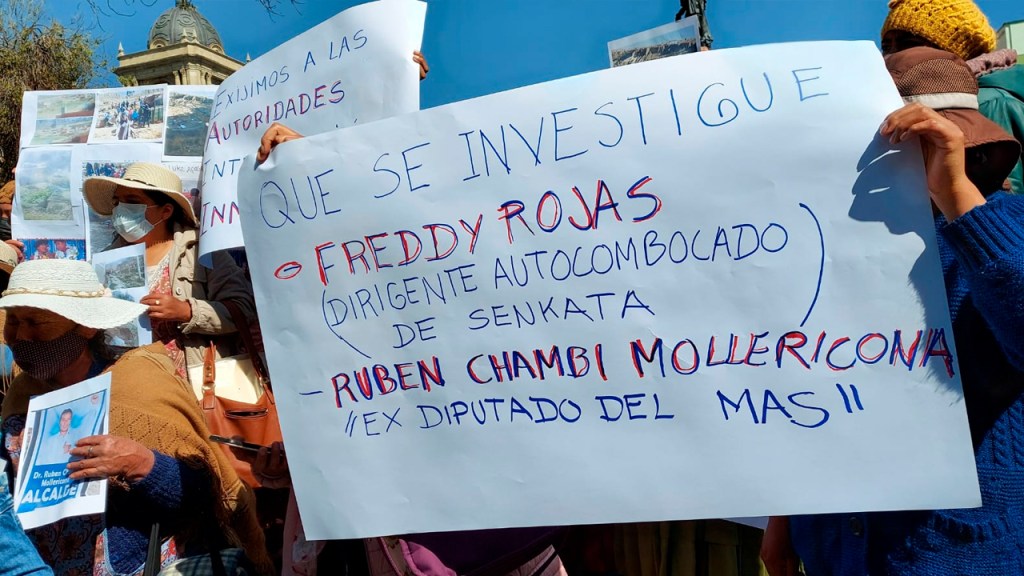 EXISIMOS A LAS
AUTORIDADES
INT
INM
QUE SE INVESTIGUE
FREDDY ROJAS
(DIRIGENTE AUTOCOMBOCADO
DE SENKATA)
- RUBEN CHAMBI MOLLERICONA
"EX DIPUTADO DEL MAS"
Dr. Ruben
ALCALDE